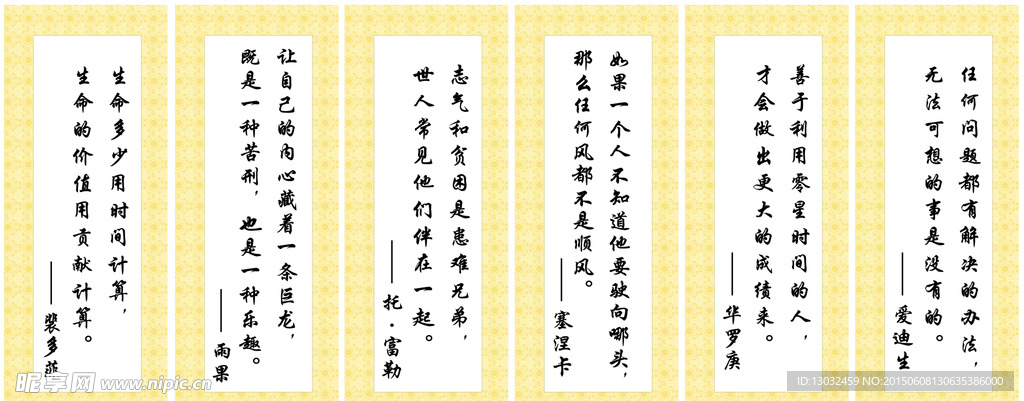 生命多少用时间计算，
生命的价值用贡献计算。
——裴多菲
让自己的内心藏着一条巨龙，
既是一种苦刑，也是一种乐趣。
——雨果
志气和贫困是患难兄弟，
世人常见他们伴在一起。
——托·富勒
如果一个人不知道他要驶向哪头，
那么任何风都不是顺风。
——塞涅卡
善于利用零星时间的人，
才会做出更大的成绩来。
——华罗庚
任何问题都有解决的办法，
无法可想的事是没有的。
——爱迪生
昵享网 www.nipic.cn
ID:13032459 NO:20150608130635386000